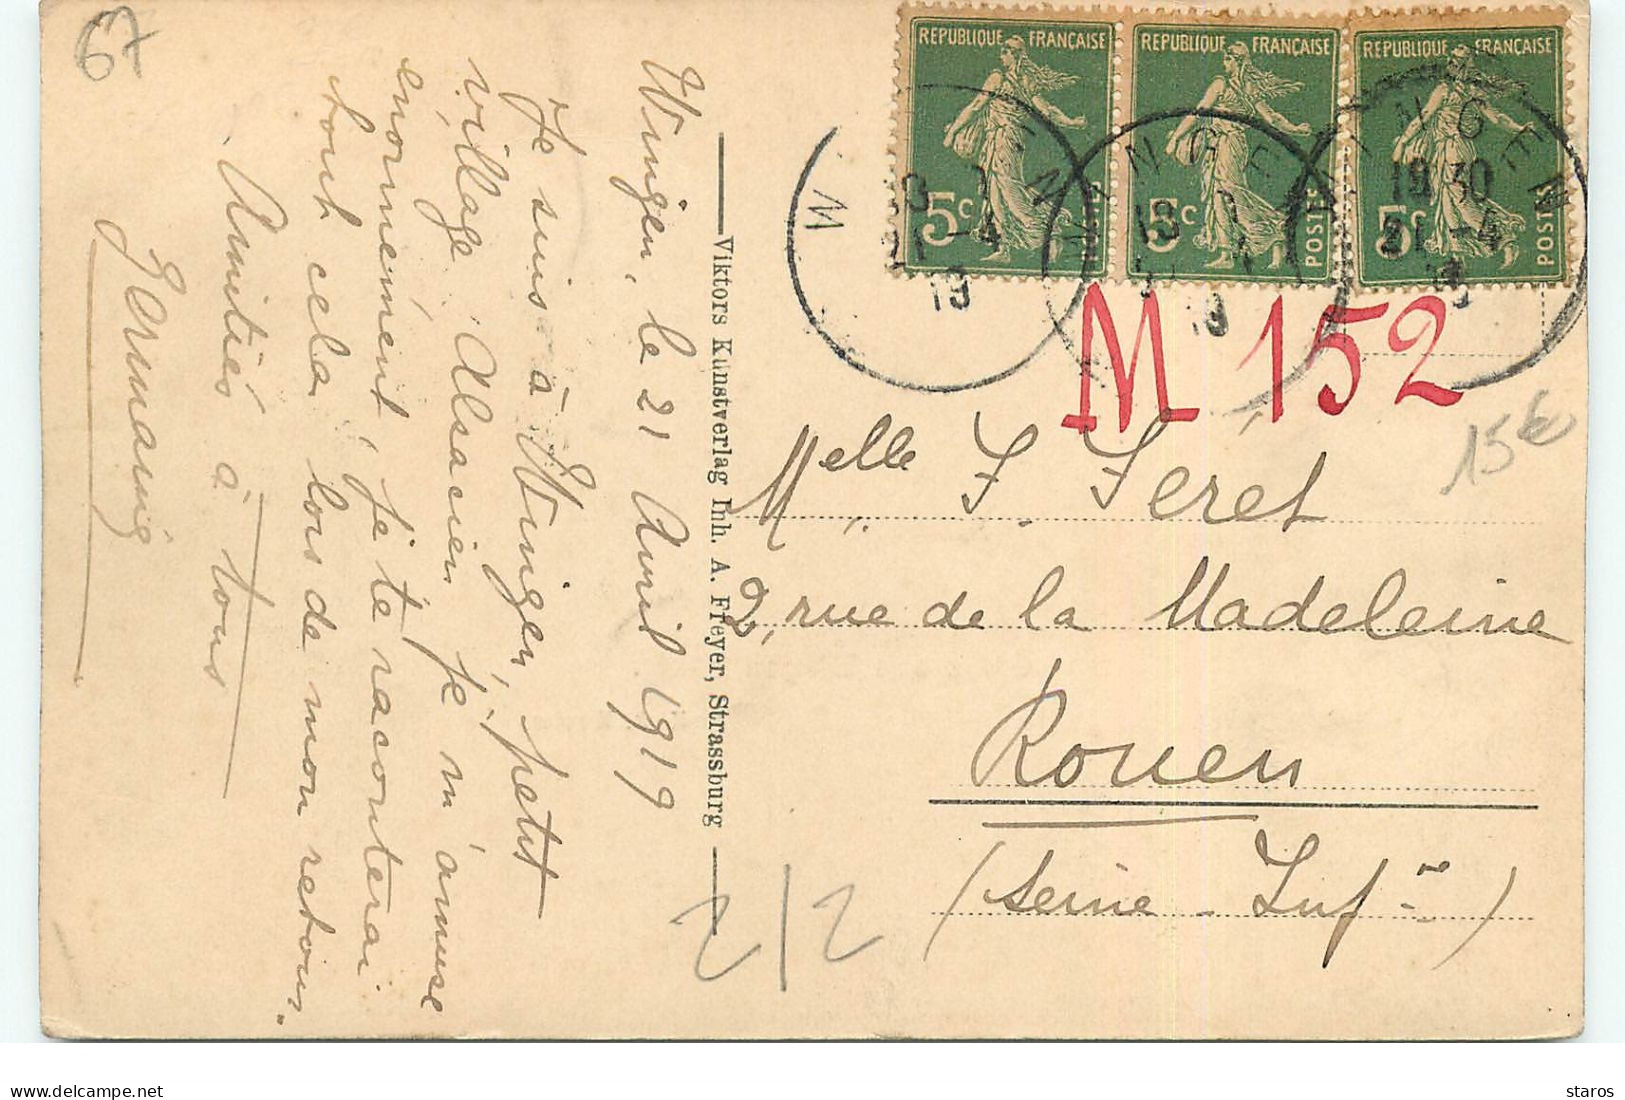 67
Wingen, le 21 Avril 1919
Je suis à Wingen, petit
village Alsacien je m'amuse
enormément, je te raconterai
tout cela lors de mon retour.
Amitiés à tous
Germaine
Viktors Kunstverlag Inh. A. Freyer, Strassburg
REPUBLIQUE FRANÇAISE
5c
POSTES
REPUBLIQUE FRANÇAISE
5c
POSTES
REPUBLIQUE FRANÇAISE
5c
POSTES
WINGEN
21-4
19
WINGEN
19
WINGEN
19 30
21-4
19
M 152
15€
Melle F. Feret
2, rue de la Madeleine
Rouen
(Seine-Infre)
2/2
delcampe.net
staros